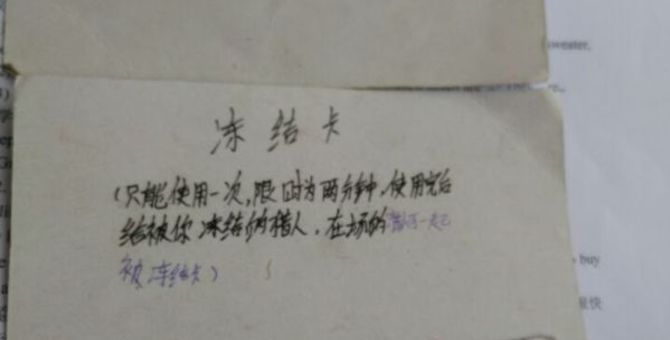 sweater.
冻结卡
(只能使用一次,限时为两分钟,使用完后
给被你冻结的猎人.在场的都可一起
被冻结卡)
buy
很快